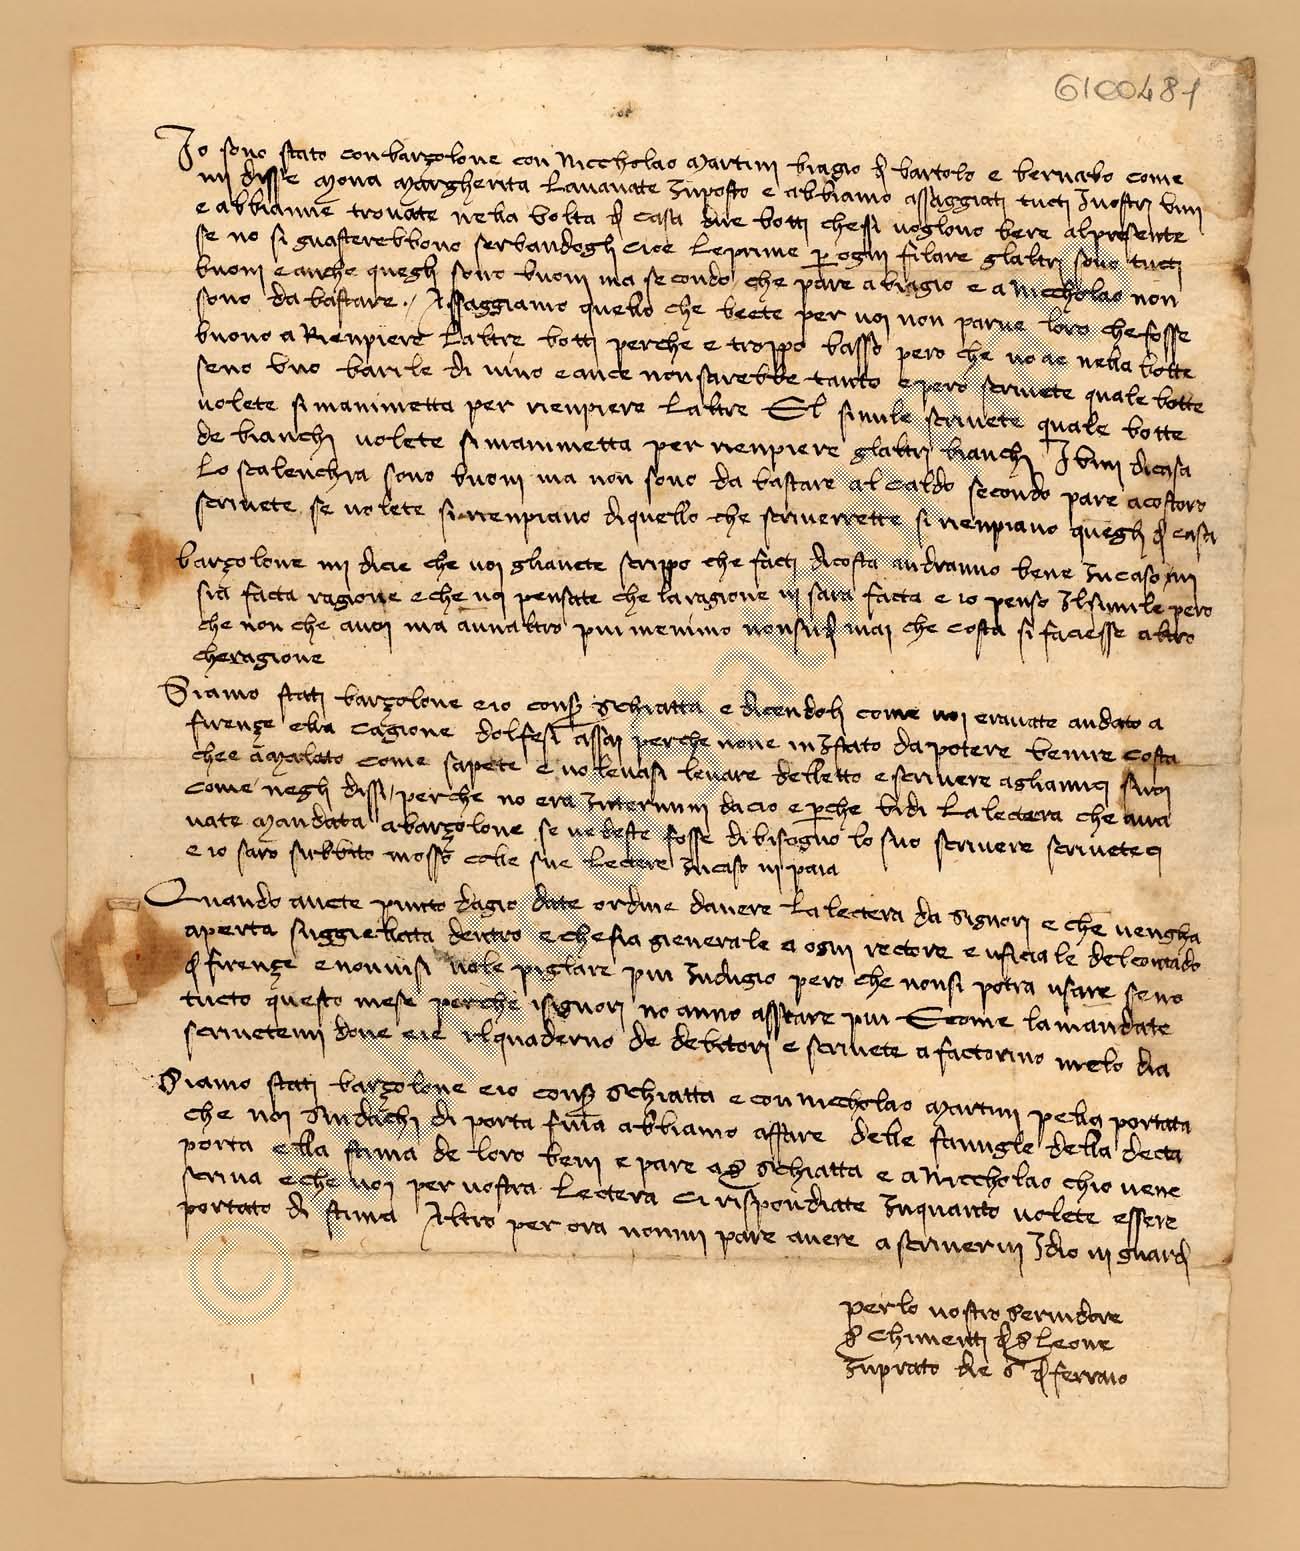 6100481
Io sono stato con barzolone con Niccholao Martini biagio di bartolo e bernabo come
mi disse Mona Margherita lavavate Inposto e abbiamo assaggiati tucti Ivostri vini
e abbianne trovate nella volta di casa due botti chessi voglono bere alpresente
se no si guasterebbono serbandogli cioe leprime per ogni filare glaltri sono tucti
buoni e anche quegli sono buoni ma secondo che pare a biagio e a Niccholao non
sono da bastare / Assaggiamo quello che beete per voi non parve loro chefosse
buono a Rienpiere laltre botti perche e troppo basso pero che no ae nella botte
seno uno barile di vino e ance non sarebbe tanto e pero scrivete quale botte
volete si manimetta per rienpiere laltre El simile scrivete quale botte
de bianchi volete si manimetta per rienpiere glaltri bianchi I vini dicasa
lo scalenchia sono buoni ma non sono da bastare al caldo secondo pare acostoro
scrivete se volete si rienpiano diquello che scriverrette si rienpiano quegli di casa
barzolone mi dicie che voi glavete scripto che facti dicosta andranno bene Incaso vi
sia facta ragione e che voi pensate che laragione vi sara facta e io penso Ilsimile pero
che non che avoi ma aunaltro piu menimo nonsudi mai che costa si faciesse altro
cheragione
Siamo stati barzolone eio conser Schiatta e dicendoli come voi eravate andato a
firenze ella cagione dolfesi assai perche none inIstato dapotere venire costa
chee amalato come sapete e volevasi levare delletto e scrivere agliamici suoi
come negli dissi / perche no era Intervini dacio e perche vidi la lectera che ava
vate Mandata abarzolone se vedeste fosse dibisogno lo suo scrivere scriveteci
e io saro subbito mosso colle sue lectere Incaso vi paia
Quando avete punto dagio date ordine davere la lectera da Signori e che vengha
aperta suggiellata dentro e chesia gienerale a ogni rectore e uficiale delcontado
di firenze e nonvisi vole piglare piu Indugio pero che nonsi potra usare seno
tucto questo mese perche isignori no anno asstare piu E come lamandate
scrivetemi dove eie ilquaderno de debitori e scrivete afactorino melo dia
Siamo stati barzolone eio conser Schiatta e con niccholao Martini pella portata
che noi Sindachi di porta fuia abbiamo affare delle famigle della decta
porta ella stima de loro beni e pare a ser Schiatta e a Niccholao chio vene
scriva e che voi per vostra lectera ci rispondiate Inquanto volete essere
portato di stima Altro per ora nonmi pare avere ascrivervi Idio vi guardi
perlo vostro servidore
ser Chimenti di ser Leone
Inprato die 6 di ferraio